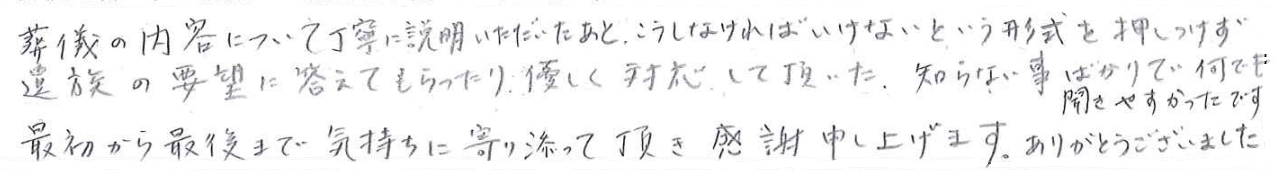 葬儀の内容について丁寧に説明いただいたあと、こうしなければいけないという形式を押しつけず
遺族の要望に答えてもらったり、優しく対応して頂いた。知らない事ばかりで何でも
聞きやすかったです
最初から最後まで気持ちに寄り添って頂き感謝申し上げます。ありがとうございました